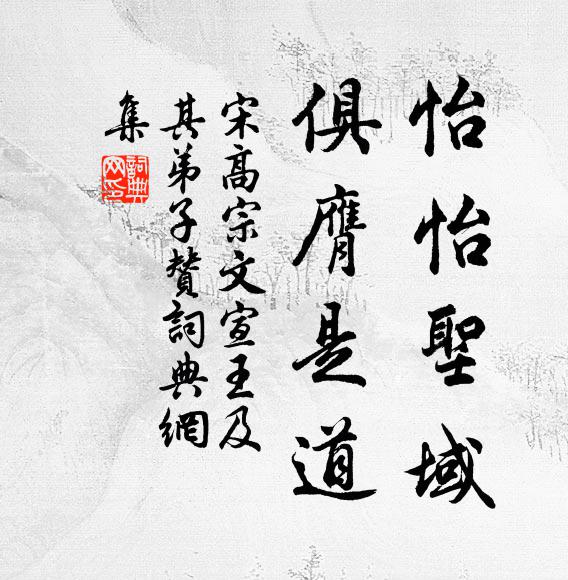 怡怡聖域
俱膺是道
宋高宗文宣王及
其弟子贊詞典網
集
詞典網印